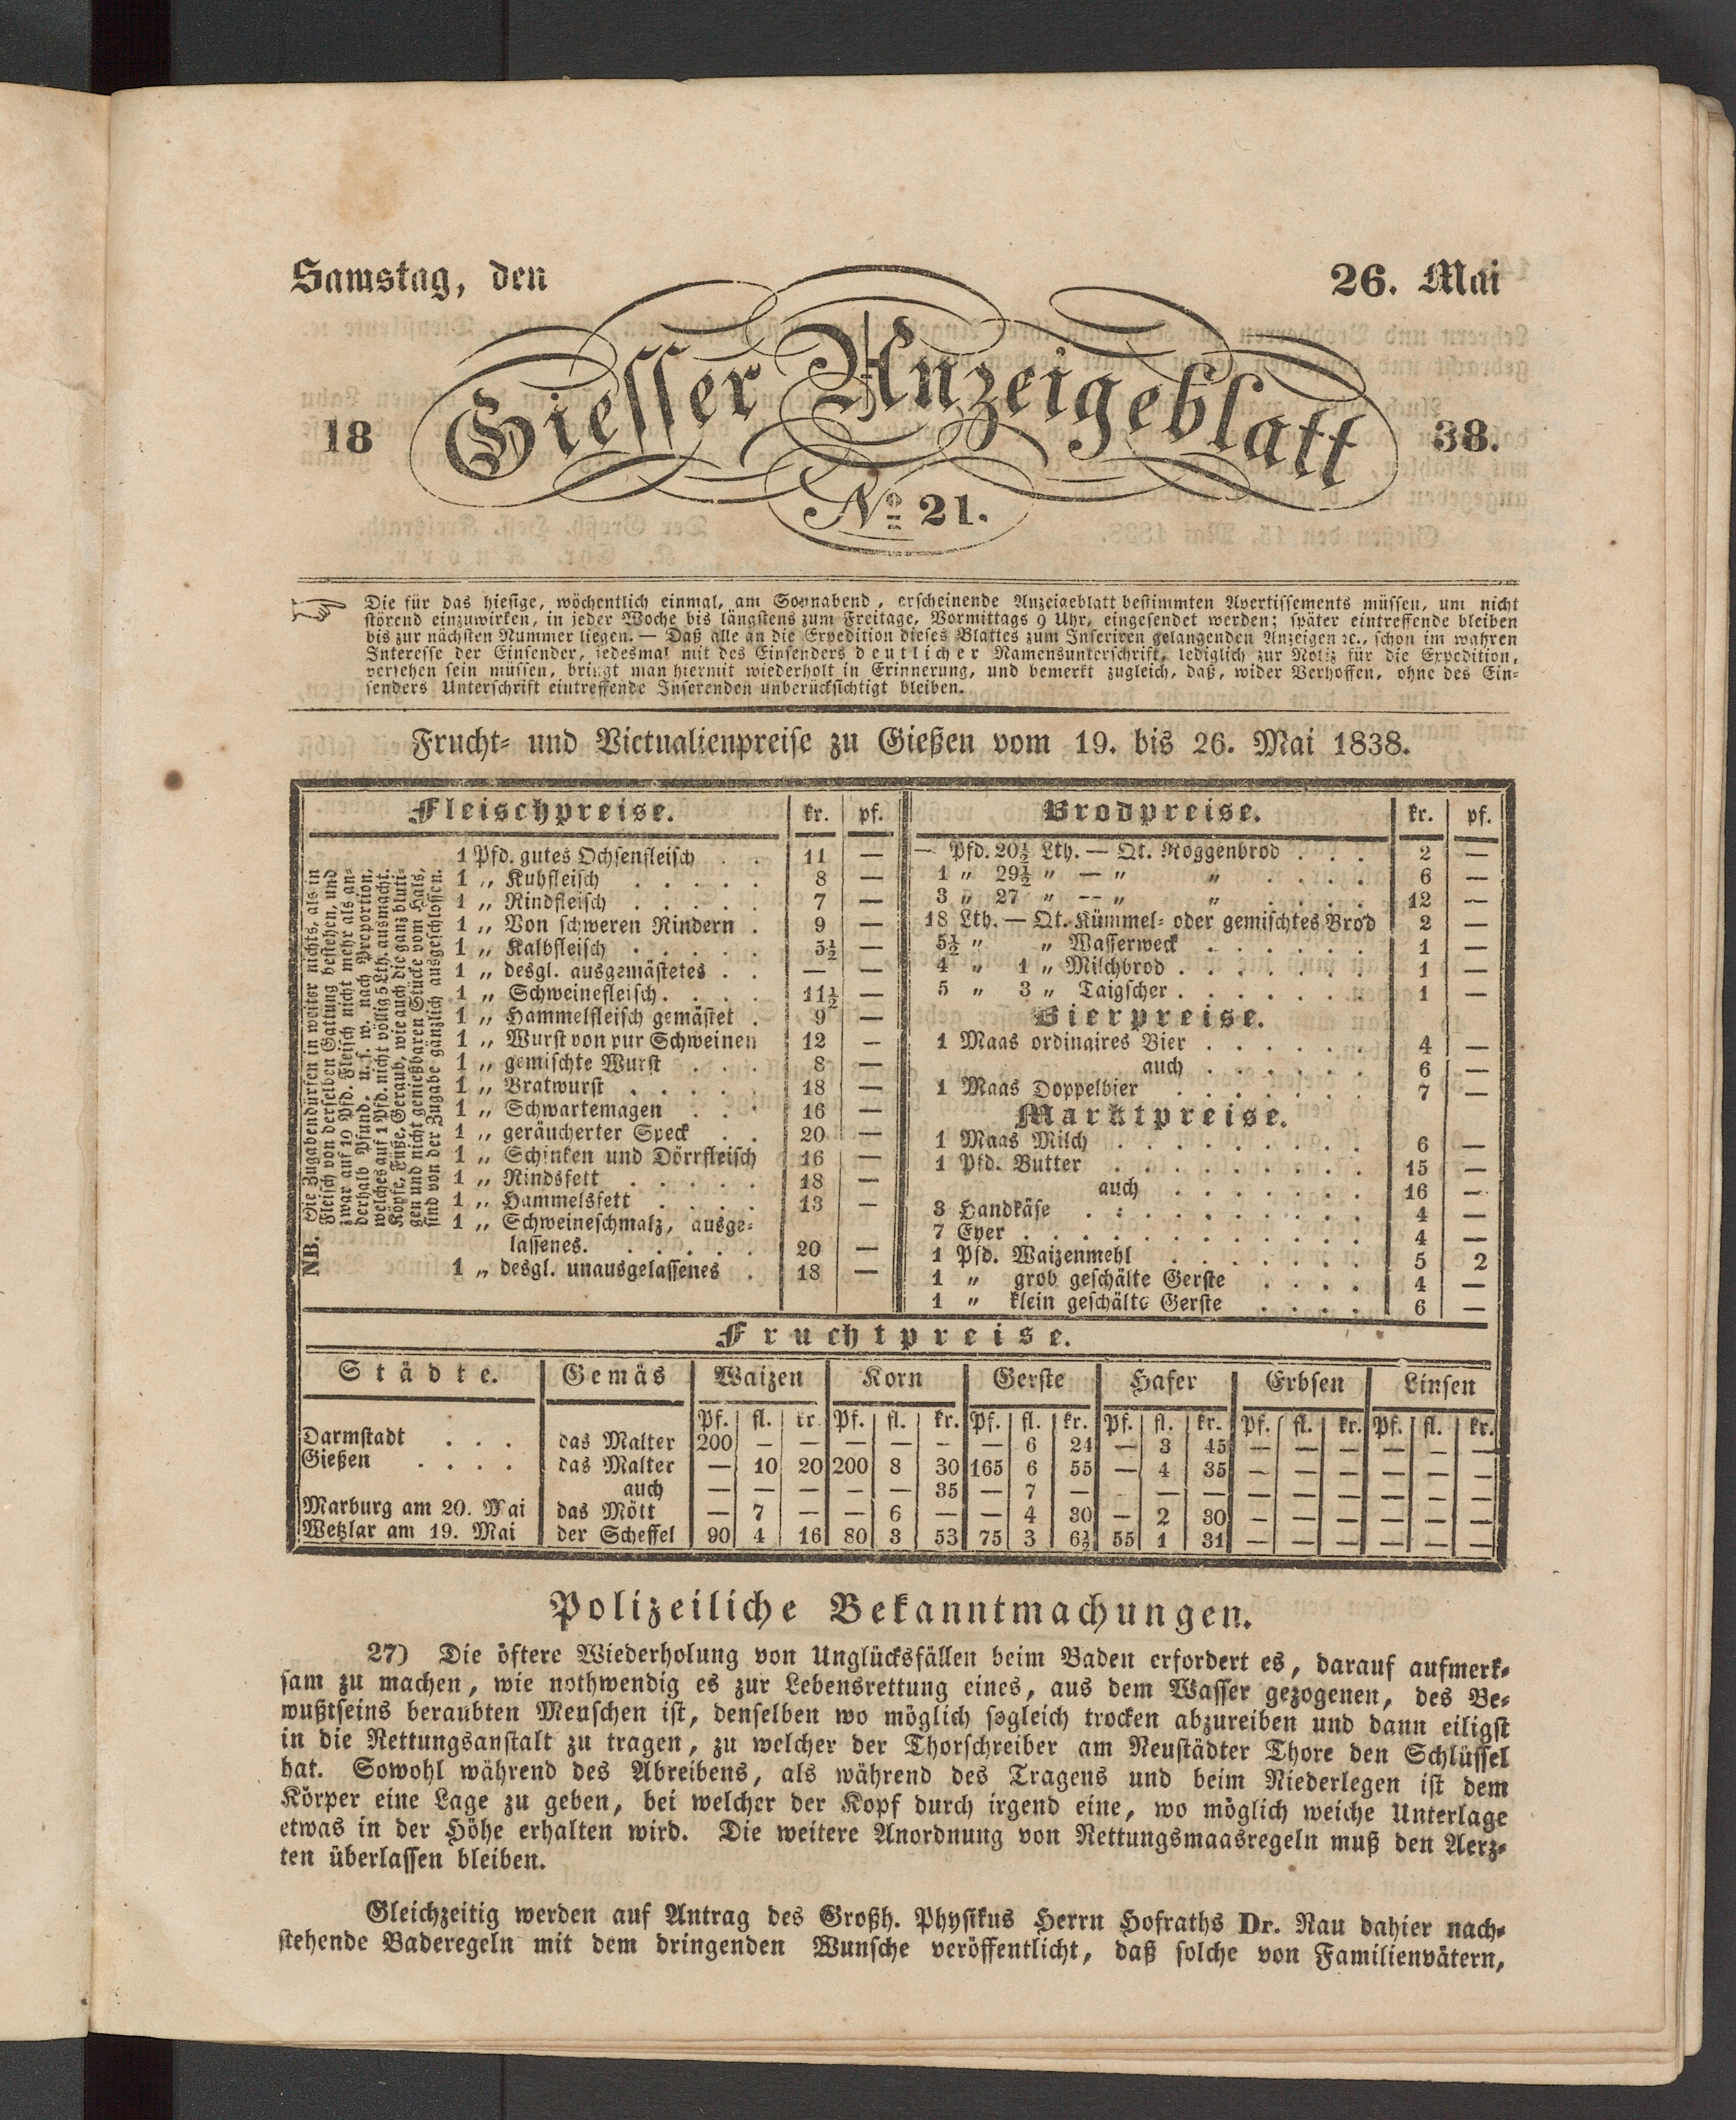 Samstag, den 26. Mai
18 Giesser Anzeigeblatt 38.
No 21.
Die für das hiesige, wöchentlich einmal, am Sonnabend, erscheinende Anzeigeblatt bestimmten Avertissements müssen, um nicht
störend einzuwirken, in jeder Woche bis längstens zum Freitage, Vormittags 9 Uhr, eingesendet werden; später eintreffende bleiben
bis zur nächsten Nummer liegen. — Daß alle an die Expedition dieses Blattes zum Inseriren gelangenden Anzeigen ꝛc., schon im wahren
Interesse der Einsender, jedesmal mit des Einsenders deutlicher Namensunterschrift, lediglich zur Notiz für die Expedition,
versehen sein müssen, bringt man hiermit wiederholt in Erinnerung, und bemerkt zugleich, daß, wider Verhoffen, ohne des Ein-
senders Unterschrift eintreffende Inserenden unberücksichtigt bleiben.
Frucht- und Victualienpreise zu Gießen vom 19. bis 26. Mai 1838.
Fleischpreise. kr. pf.
1 Pfd. gutes Ochsenfleisch . . 11 —
1 „ Kuhfleisch . . . . . 8 —
1 „ Rindfleisch . . . . . 7 —
1 „ Von schweren Rindern . 9 —
1 „ Kalbfleisch . . . . . 5½ —
1 „ desgl. ausgemästetes . . — —
1 „ Schweinefleisch . . . . 11½ —
1 „ Hammelfleisch gemästet . 9 —
1 „ Wurst von pur Schweinen 12 —
1 „ gemischte Wurst . . . 8 —
1 „ Bratwurst . . . . . 18 —
1 „ Schwartemagen . . . 16 —
1 „ geräucherter Speck . . 20 —
1 „ Schinken und Dörrfleisch 16 —
1 „ Rindsfett . . . . . 18 —
1 „ Hammelsfett . . . . 13 —
1 „ Schweineschmalz, ausge-
lassenes. . . . . . 20 —
1 „ desgl. unausgelassenes . 18 —
NB. Die Zugaben dürfen in weiter nichts, als in
Fleisch von derselben Gattung bestehen, und
zwar auf 10 Pfd. Fleisch nicht mehr als an-
derhalb Pfund. u. s. w. nach Proportion,
welches auf 1 Pfd. nicht völlig 5 Lth. ausmacht.
Köpfe, Füße, Geraub, wie auch die ganz bluti-
gen und nicht genießbaren Stücke vom Hals,
sind von der Zugabe gänzlich ausgeschlossen.
Brodpreise. kr. pf.
— Pfd. 20½ Lth. — Qt. Roggenbrod . . . 2 —
1 „ 29½ „ — „ „ . . . . 6 —
3 „ 27 „ — „ „ . . . . 12 —
18 Lth. — Qt. Kümmel- oder gemischtes Brod 2 —
5½ „ „ Wasserweck . . . . . . 1 —
4 „ 1 „ Milchbrod . . . . . . . 1 —
5 „ 3 „ Taigscher . . . . . . . 1 —
Bierpreise.
1 Maas ordinaires Bier . . . . . . 4 —
auch . . . . . . 6 —
1 Maas Doppelbier . . . . . . . 7 —
Marktpreise.
1 Maas Milch . . . . . . . . 6 —
1 Pfd. Butter . . . . . . . . 15 —
auch . . . . . . . 16 —
3 Handkäse . . . . . . . . . 4 —
7 Eyer . . . . . . . . . . . 4 —
1 Pfd. Waizenmehl . . . . . . 5 2
1 „ grob geschälte Gerste . . . . 4 —
1 „ klein geschälte Gerste . . . . 6 —
Fruchtpreise.
Städte. Gemäs Waizen Korn Gerste Hafer Erbsen Linsen
Pf. fl. kr. Pf. fl. kr. Pf. fl. kr. Pf. fl. kr. Pf. fl. kr. Pf. fl. kr.
Darmstadt . . . das Malter 200 — — — — — — 6 24 — 3 45 — — — — — —
Gießen . . . . das Malter — 10 20 200 8 30 165 6 55 — 4 35 — — — — — —
auch — — — — — 35 — 7 — — — — — — — — —
Marburg am 20. Mai das Mött — 7 — — 6 — — 4 30 — 2 30 — — — — — —
Wetzlar am 19. Mai der Scheffel 90 4 16 80 3 53 75 3 6½ 55 1 31 — — — — — —
Polizeiliche Bekanntmachungen.
27) Die öftere Wiederholung von Unglücksfällen beim Baden erfordert es, darauf aufmerk-
sam zu machen, wie nothwendig es zur Lebensrettung eines, aus dem Wasser gezogenen, des Be-
wußtseins beraubten Menschen ist, denselben wo möglich sogleich trocken abzureiben und dann eiligst
in die Rettungsanstalt zu tragen, zu welcher der Thorschreiber am Neustädter Thore den Schlüssel
hat. Sowohl während des Abreibens, als während des Tragens und beim Niederlegen ist dem
Körper eine Lage zu geben, bei welcher der Kopf durch irgend eine, wo möglich weiche Unterlage
etwas in der Höhe erhalten wird. Die weitere Anordnung von Rettungsmaasregeln muß den Aerz-
ten überlassen bleiben.
Gleichzeitig werden auf Antrag des Großh. Physikus Herrn Hofraths Dr. Rau dahier nach-
stehende Baderegeln mit dem dringenden Wunsche veröffentlicht, daß solche von Familienvätern,